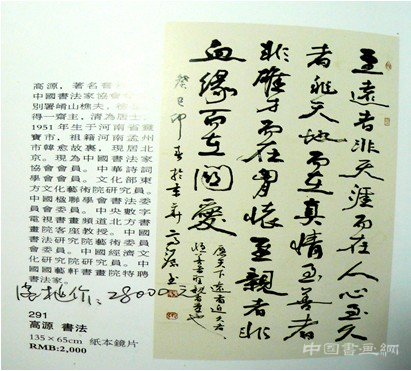 高源，著名書
中國書法家協會
別署崤山樵夫，
得一齋主，清為居士，
1951年生于河南省靈
寶市，祖籍河南孟州
市韓愈故裏，現居北
京。現為中國書法家
協會會員。中華詩詞
學會會員。文化部東
方文化藝術院研究員。
中國楹聯學會書法委
員會委員。中央數字
電視書畫頻道北方書
畫院客座教授。中國
書法研究院藝術委員
會委員。中國經濟文
化研究院研究員。中
國國藝軒書畫院特聘
書法家。
291
高源 書法
135×65cm 紙本鏡片
RMB:2,000
至遠者非天涯而在人心至久
者非天地而在真情至善者
非雄才而在胸懷至親者非
血緣而在關愛
癸巳仲春於京華高源書
中国書画網